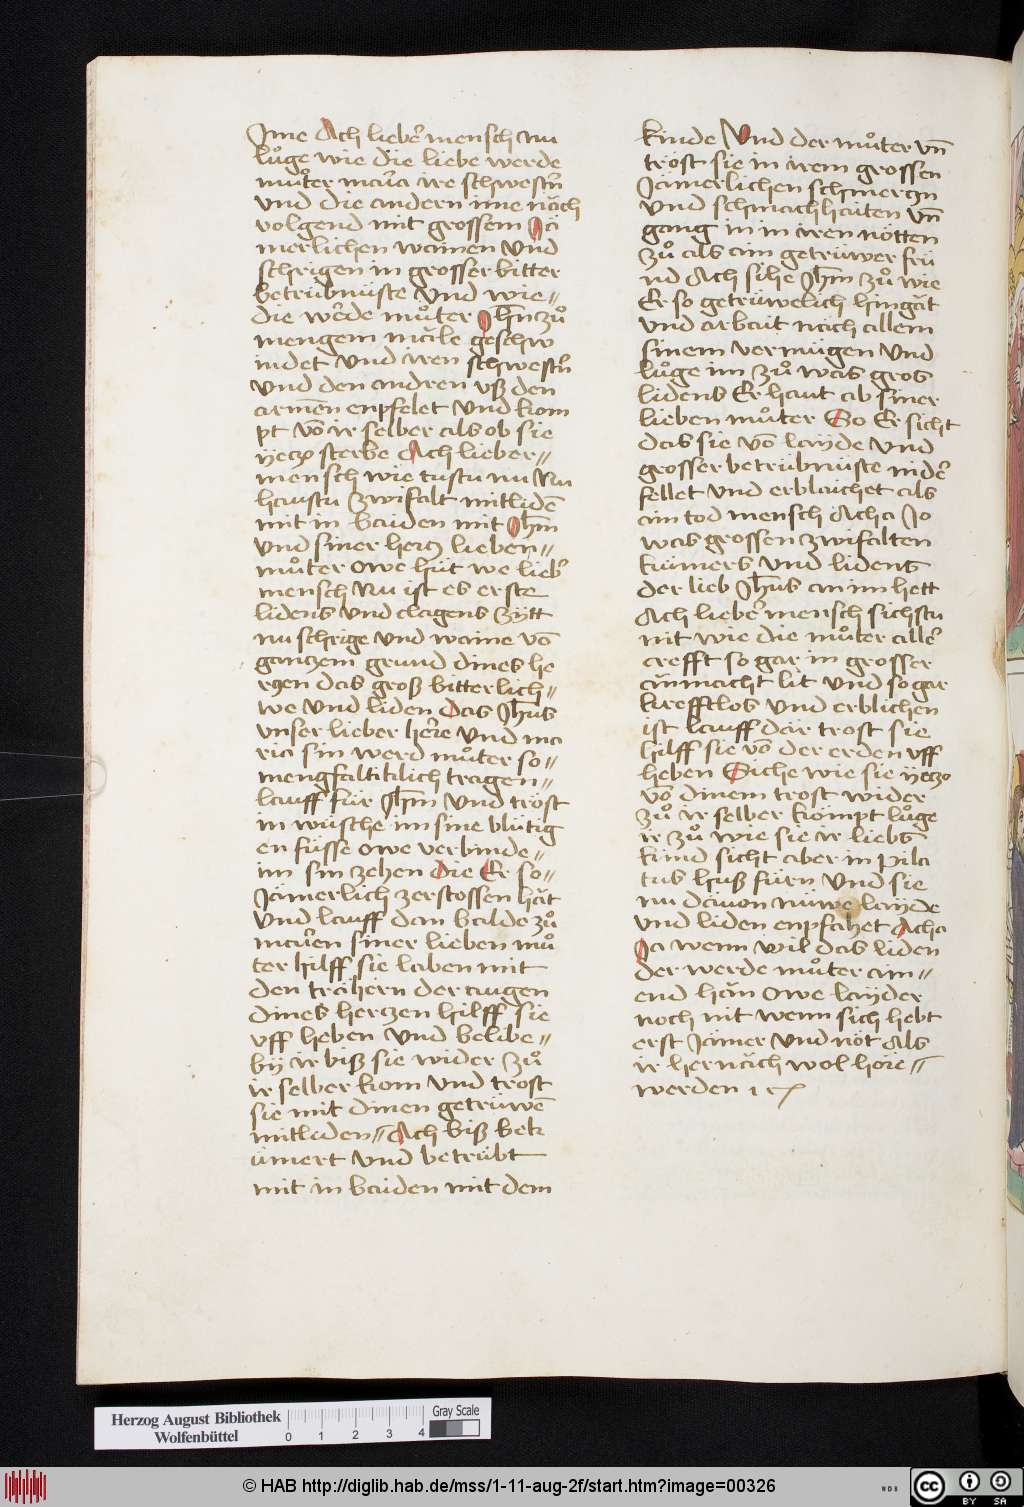 Jme Ach liebeꝛ mensch nu
lůge wie die liebe werde
můter maria ire schwestn̄
vnd die andern ime nǎch
volgend mit grossem Jä
merlichen wainen vnd
schrigen in grosser bitter
betrübnüste vnd wie⸗
die werde můter Jhn̄ zů
mengem māle geschw
indet vnd iren schwestn̄
vnd den andren vß den
armen̄ enpfelet vnd kom
pt vō ir selber als ob sie
yecz sterbe Ach lieber⸗
mensch wie tustu nu Nu
haustu zwifalt mitliden̄
mit in baiden mit Jhm̄
vnd siner hercz lieben⸗
můter owe hüt we liebꝛ̄
mensch Nu ist es erste
lidens vnd clagens zÿtt
nu schrige vnd waine vō
ganczem grund dines he
rczen das groß bitterlich⸗
we vnd liden das Jhūs
vnser lieber here vnd ma
ria sin werd můter so⸗
mengfaltiklich tragen⸗
lauff für Jhm̄ vnd tröst
in wüsche im sine blütig
en füsse owe verbinde⸗
im sin zehen die Er so⸗
Jämerlich zerstossen hǎt
vnd lauff dan balde zů
marien siner lieben mů
ter hilff sie laben mit
den trähern der augen
dines herczen hilff sie
vff heben vnd belibe⸗
bÿ ir biß sie wider zů
ir selber kom vnd trost
sie mit dinen getrüwen̄
mitliden⸗ Ach biß bek
ümert vnd betrübt
mit in baiden mit dem
kinde Vnd der můter vn̄
tröst sie in irem grossen
Jämerlichen schmerczn
vnd schmachhaiten vn̄
gang in in iren nötten
zů als ain getrüwer frü
nd Ach sihe Jhm̄ zů wie
Er so getrüwelich hingǎt
vnd arbait nach allem
sinem vermügen vnd
lůge im zů was gros
lidens Er haut ab siner
lieben můter So Er sicht
das sie vō layde vnd
grosser betrübnüste niderꝛ
fellet vnd erblaichet als
ain tod mensch Acha Jo
was grossen zwifalten
kumers vnd lidens
der lieb Jhūs an im hett
Ach liebeꝛ mensch sichstu
nit wie die můter alleꝛ
crefft so gar in grosser
ǎnmacht lit vnd so gar
krefftlos vnd erblichen
ist lauff dar trost sie
hilff sie vō der erden vff
heben Siche wie sie yecz
vō dinem trost wider
zů ir selber kömpt lůge
ir zů wie sie ir liebs
kind sicht aber in pila
tus huß fürn vnd sie
nu dauon nüwe layde
vnd liden enpfahet Acha
Ja wenn wil das liden
der werde můter ain⸗
end hǎn owe layder
noch nit wenn sich hebt
erst Jamer vnd nöt Als
ir hernǎch wol höre⸗
werden
Herzog August Bibliothek
Wolfenbüttel
0 1 2 3 4
Gray Scale
© HAB http://diglib.hab.de/mss/1-11-aug-2f/start.htm?image=00326
WDB
CC BY SA